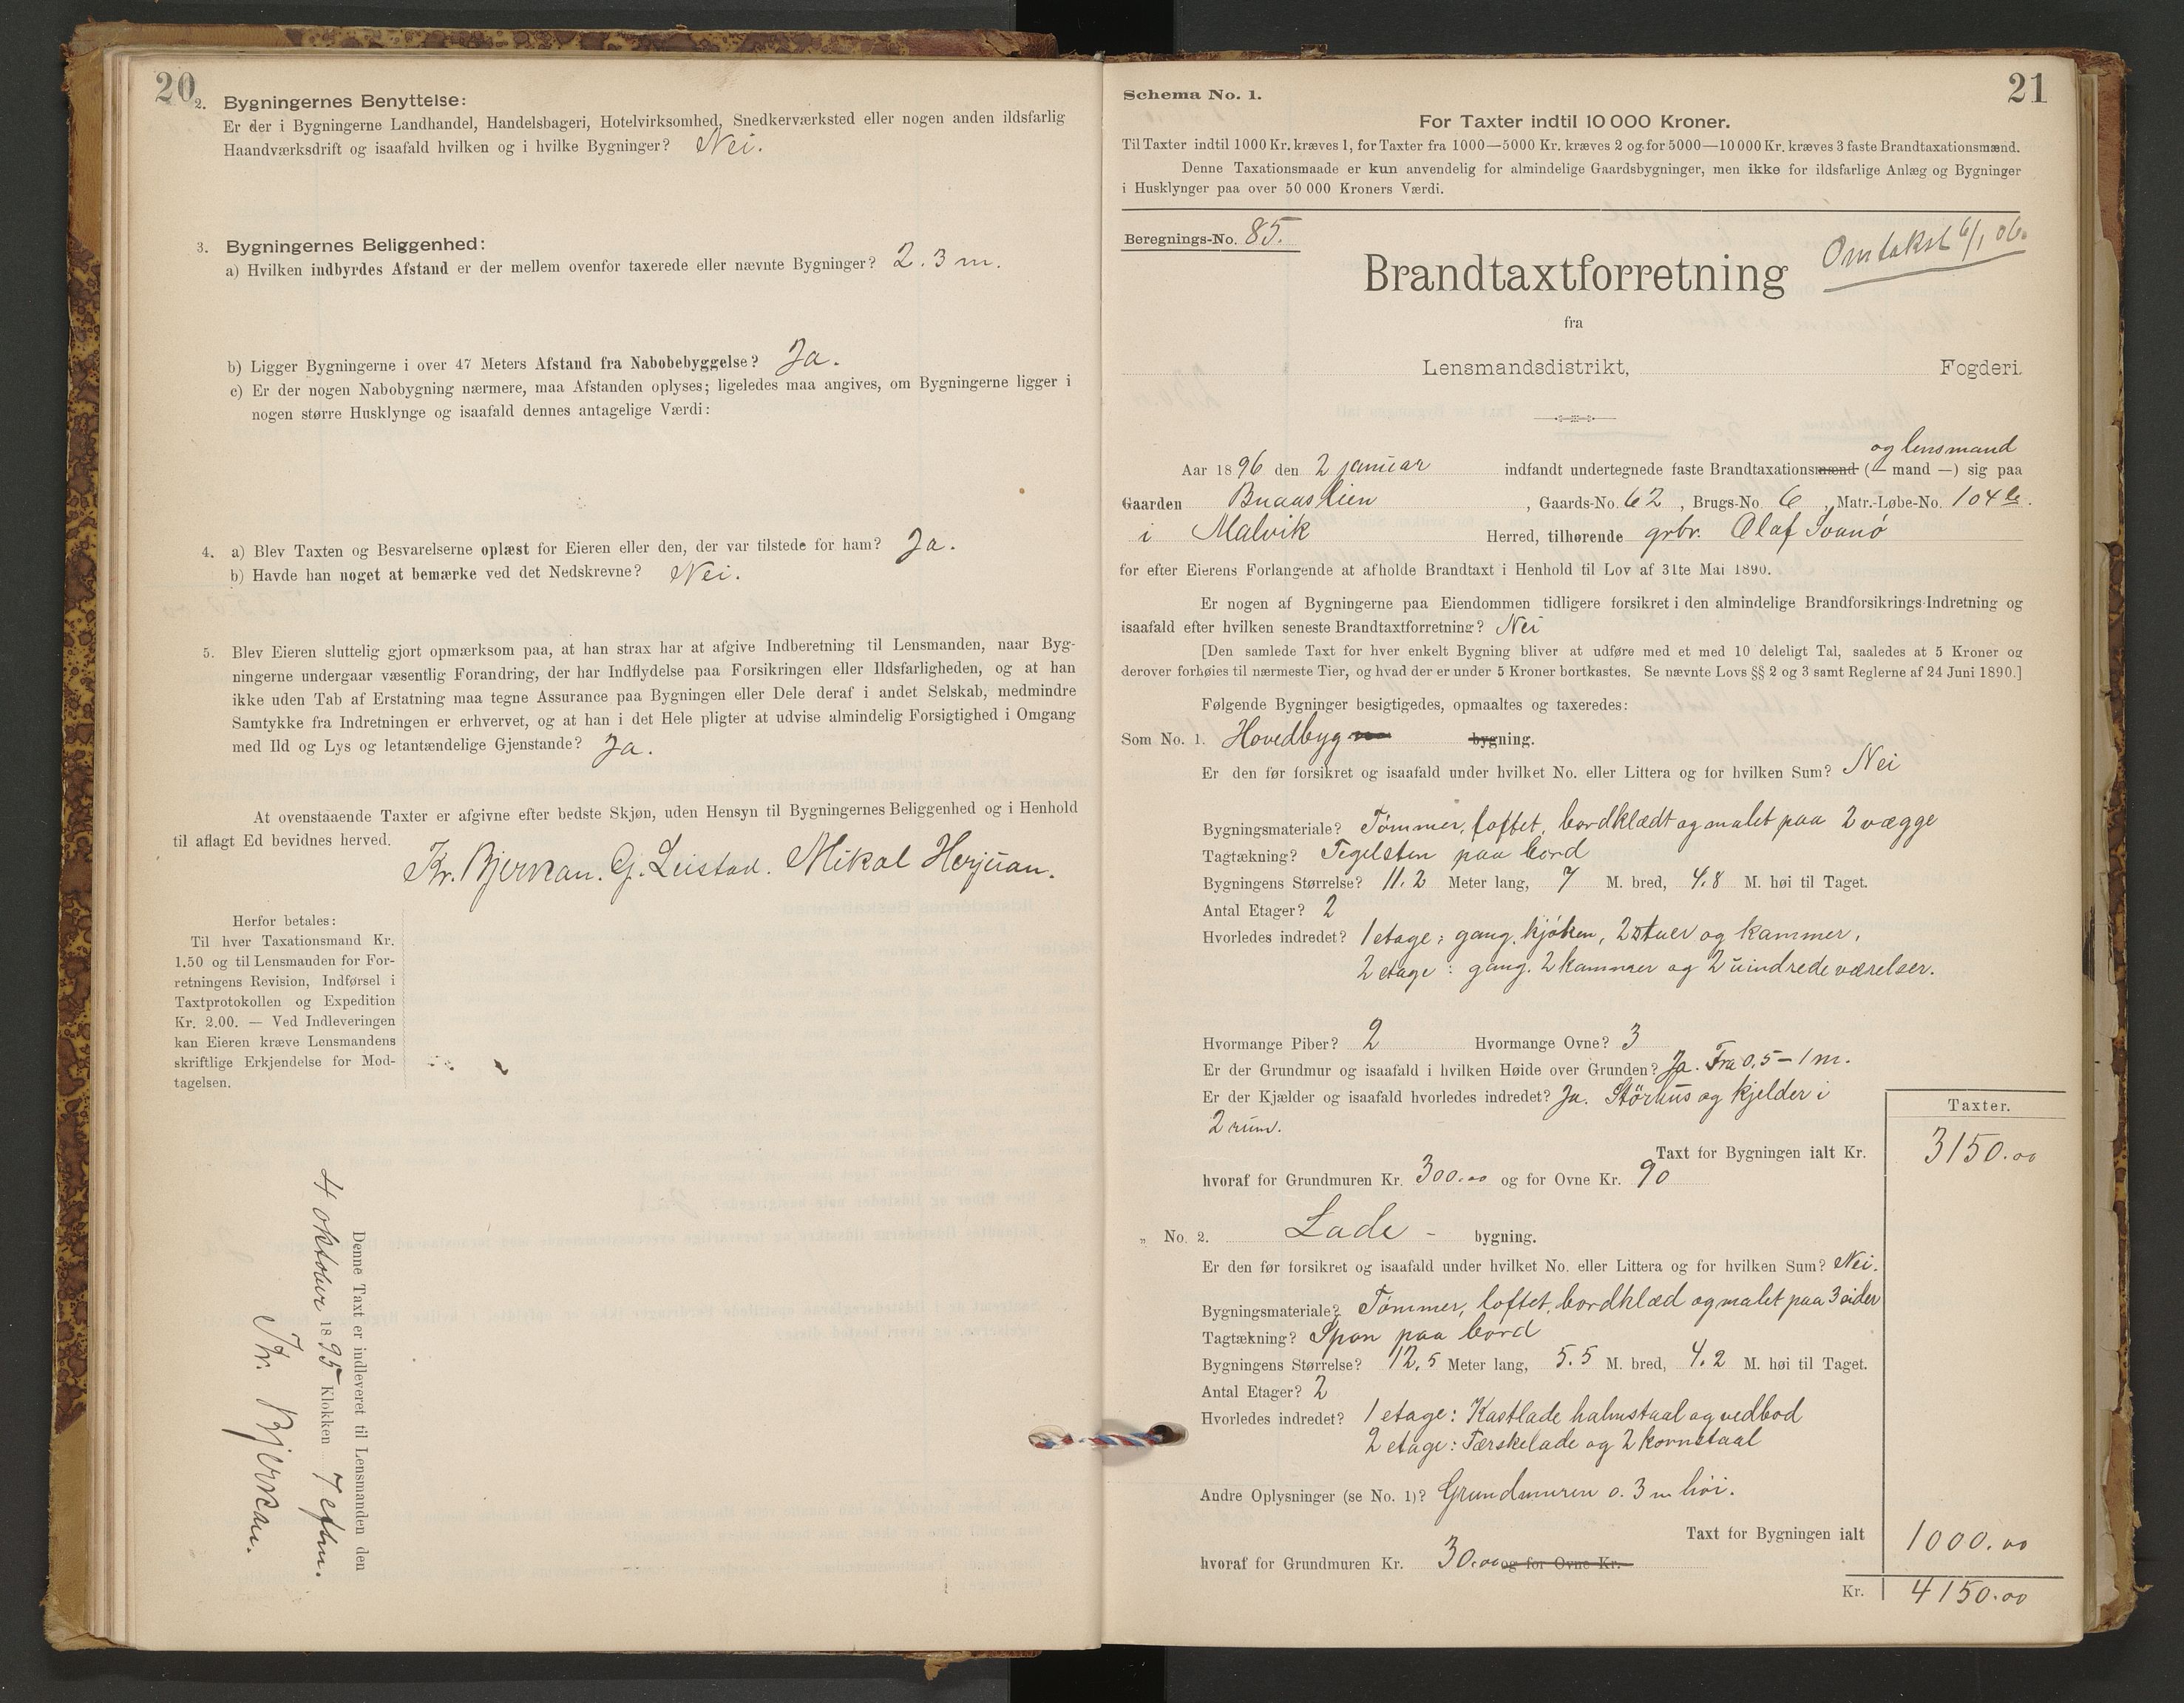 20
2. Bygningernes Benyttelse:
Er der i Bygningerne Landhandel, Handelsbageri, Hotelvirksomhed, Snedkerværksted eller nogen anden ildsfarlig
Haandværksdrift og isaafald hvilken og i hvilke Bygninger? Nei.
3. Bygningernes Beliggenhed:
a) Hvilken indbyrdes Afstand er der mellem ovenfor taxerede eller nævnte Bygninger? 2.3 m.
b) Ligger Bygningerne i over 47 Meters Afstand fra Nabobebyggelse? Ja.
c) Er der nogen Nabobygning nærmere, maa Afstanden oplyses; ligeledes maa angives, om Bygningerne ligger i
nogen større Husklynge og isaafald dennes antagelige Værdi:
4. a) Blev Taxten og Besvarelserne oplæst for Eieren eller den, der var tilstede for ham? Ja.
b) Havde han noget at bemærke ved det Nedskrevne? Nei.
5. Blev Eieren sluttelig gjort opmærksom paa, at han strax har at afgive Indberetning til Lensmanden, naar Byg-
ningerne undergaar væsentlig Forandring, der har Indflydelse paa Forsikringen eller Ildsfarligheden, og at han
ikke uden Tab af Erstatning maa tegne Assurance paa Bygningen eller Dele deraf i andet Selskab, medmindre
Samtykke fra Indretningen er erhvervet, og at han i det Hele pligter at udvise almindelig Forsigtighed i Omgang
med Ild og Lys og letantændelige Gjenstande? Ja.
At ovenstaaende Taxter er afgivne efter bedste Skjøn, uden Hensyn til Bygningernes Beliggenhed og i Henhold
til aflagt Ed bevidnes herved.
Kr. Bjerkan. G. Leistad. Mikal Herjuan.
Herfor betales:
Til hver Taxationsmand Kr.
1.50 og til Lensmanden for For-
retningens Revision, Indførsel i
Taxtprotokollen og Expedition
Kr. 2.00. — Ved Indleveringen
kan Eieren kræve Lensmandens
skriftlige Erkjendelse for Mod-
tagelsen.
Denne Taxt er indleveret til Lensmanden den
4 oktober 1895 Klokken 7 eftm.
Kr. Bjerkan.
21
Schema No. 1.
For Taxter indtil 10 000 Kroner.
Til Taxter indtil 1000 Kr. kræves 1, for Taxter fra 1000—5000 Kr. kræves 2 og for 5000—10 000 Kr. kræves 3 faste Brandtaxationsmænd.
Denne Taxationsmaade er kun anvendelig for almindelige Gaardsbygninger, men ikke for ildsfarlige Anlæg og Bygninger
i Husklynger paa over 50 000 Kroners Værdi.
Beregnings-No. 85.
Omtakst 6/1 06.
Brandtaxtforretning
fra
Lensmandsdistrikt, Fogderi.
og lensmand
Aar 1896 den 2 januar indfandt undertegnede faste Brandtaxationsmænd (— mand —) sig paa
Gaarden , Gaards-No. 62, Brugs-No. 6, Matr.-Løbe-No. 104
i Malvik Herred, tilhørende grbr. Olaf
for efter Eierens Forlangende at afholde Brandtaxt i Henhold til Lov af 31te Mai 1890.
Er nogen af Bygningerne paa Eiendommen tidligere forsikret i den almindelige Brandforsikrings-Indretning og
isaafald efter hvilken seneste Brandtaxtforretning? Nei
[Den samlede Taxt for hver enkelt Bygning bliver at udføre med et med 10 deleligt Tal, saaledes at 5 Kroner og
derover forhøies til nærmeste Tier, og hvad der er under 5 Kroner bortkastes. Se nævnte Lovs §§ 2 og 3 samt Reglerne af 24 Juni 1890.]
Følgende Bygninger besigtigedes, opmaaltes og taxeredes:
Som No. 1. Hovedbyg bygning.
Er den før forsikret og isaafald under hvilket No. eller Littera og for hvilken Sum? Nei
Bygningsmateriale? Tømmer, loftet, bordklædt og malet paa 2 vægge
Tagtækning? Tegelsten paa bord
Bygningens Størrelse? 11.2 Meter lang, 7 M. bred, 4.8 M. høi til Taget.
Antal Etager? 2
Hvorledes indredet? 1 etage: gang, kjøken, 2 stuer og kammer,
2 etage: gang. 2 kammer og 2 uindrede værelser.
Hvormange Piber? 2 Hvormange Ovne? 3
Er der Grundmur og isaafald i hvilken Høide over Grunden? Ja. Fra 0,5 – 1 m.
Er der Kjælder og isaafald hvorledes indredet? Ja. Størhus og kjelder i
2 rum.
Taxter.
Taxt for Bygningen ialt Kr. 3150.00
hvoraf for Grundmuren Kr. 300.00 og for Ovne Kr. 90
„ No. 2. Lade - bygning.
Er den før forsikret og isaafald under hvilket No. eller Littera og for hvilken Sum? Nei.
Bygningsmateriale? Tømmer, loftet, bordklæd og malet paa 3 sider
Tagtækning? Spon paa bord
Bygningens Størrelse? 12.5 Meter lang, 5.5 M. bred, 4.2 M. høi til Taget.
Antal Etager? 2
Hvorledes indredet? 1 etage: Kastlade halmstaal og vedbod
2 etage: Tærskelade og 2 kornstaal
Andre Oplysninger (se No. 1)? Grundmuren 0.3 m høi.
Taxt for Bygningen ialt 1000.00
hvoraf for Grundmuren Kr. 30.00 og for Ovne Kr.
Kr. 4150.00